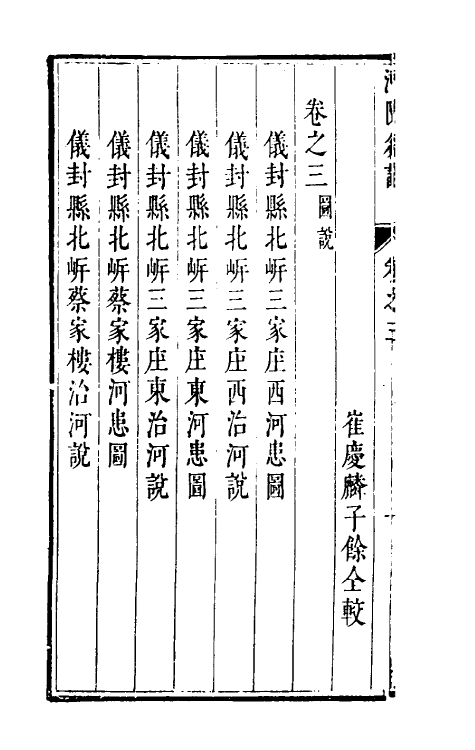 崔慶麟子餘仝較
卷之三 圖說
儀封縣北岸三家庄西河患圖
儀封縣北岸三家庄西治河說
儀封縣北岸三家庄東河患圖
儀封縣北岸三家庄東治河說
儀封縣北岸蔡家樓河患圖
儀封縣北岸蔡家樓治河說